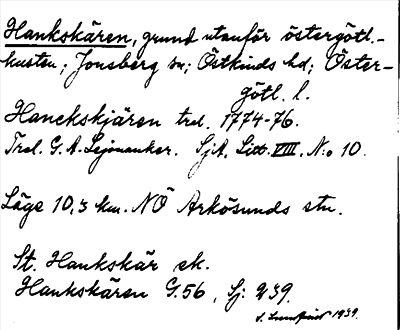 Hankskären, grund utanför östergötl.-
kusten; Jonsberg sn; Östkinds hd; Öster-
götl. l.
Hanckskjären trol. 1774-76.
Trol. G. A. Leijonancker. SjA, Litt. VIII, N:o 10.
Läge 10,5 km. NÖ Arkösunds stn.
St. Hankskär ek.
Hankskären G.56, Sj: 239.
1939.